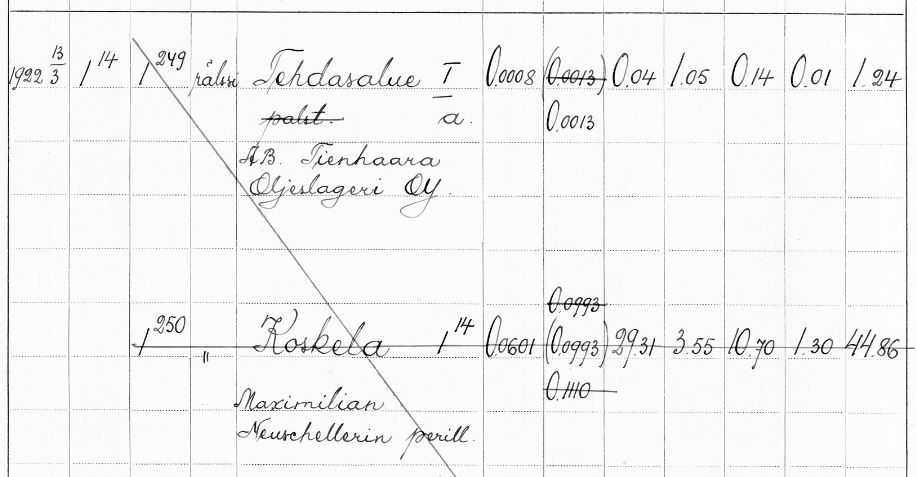 1922 13/3 1¹⁴ 1²⁴⁹ rälssi Tehdasalue I 0.0008 (0.0013) 0.04 1.05 0.14 0.01 1.24
palst. a. 0.0013
AB. Tienhaara
Oljeslageri OY.
0.0993
1²⁵⁰ " Koskela 1¹⁴ 0.0601 (0.0993) 29.31 3.55 10.70 1.30 44.86
0.1110
Maximilian
Neuschellerin perill.